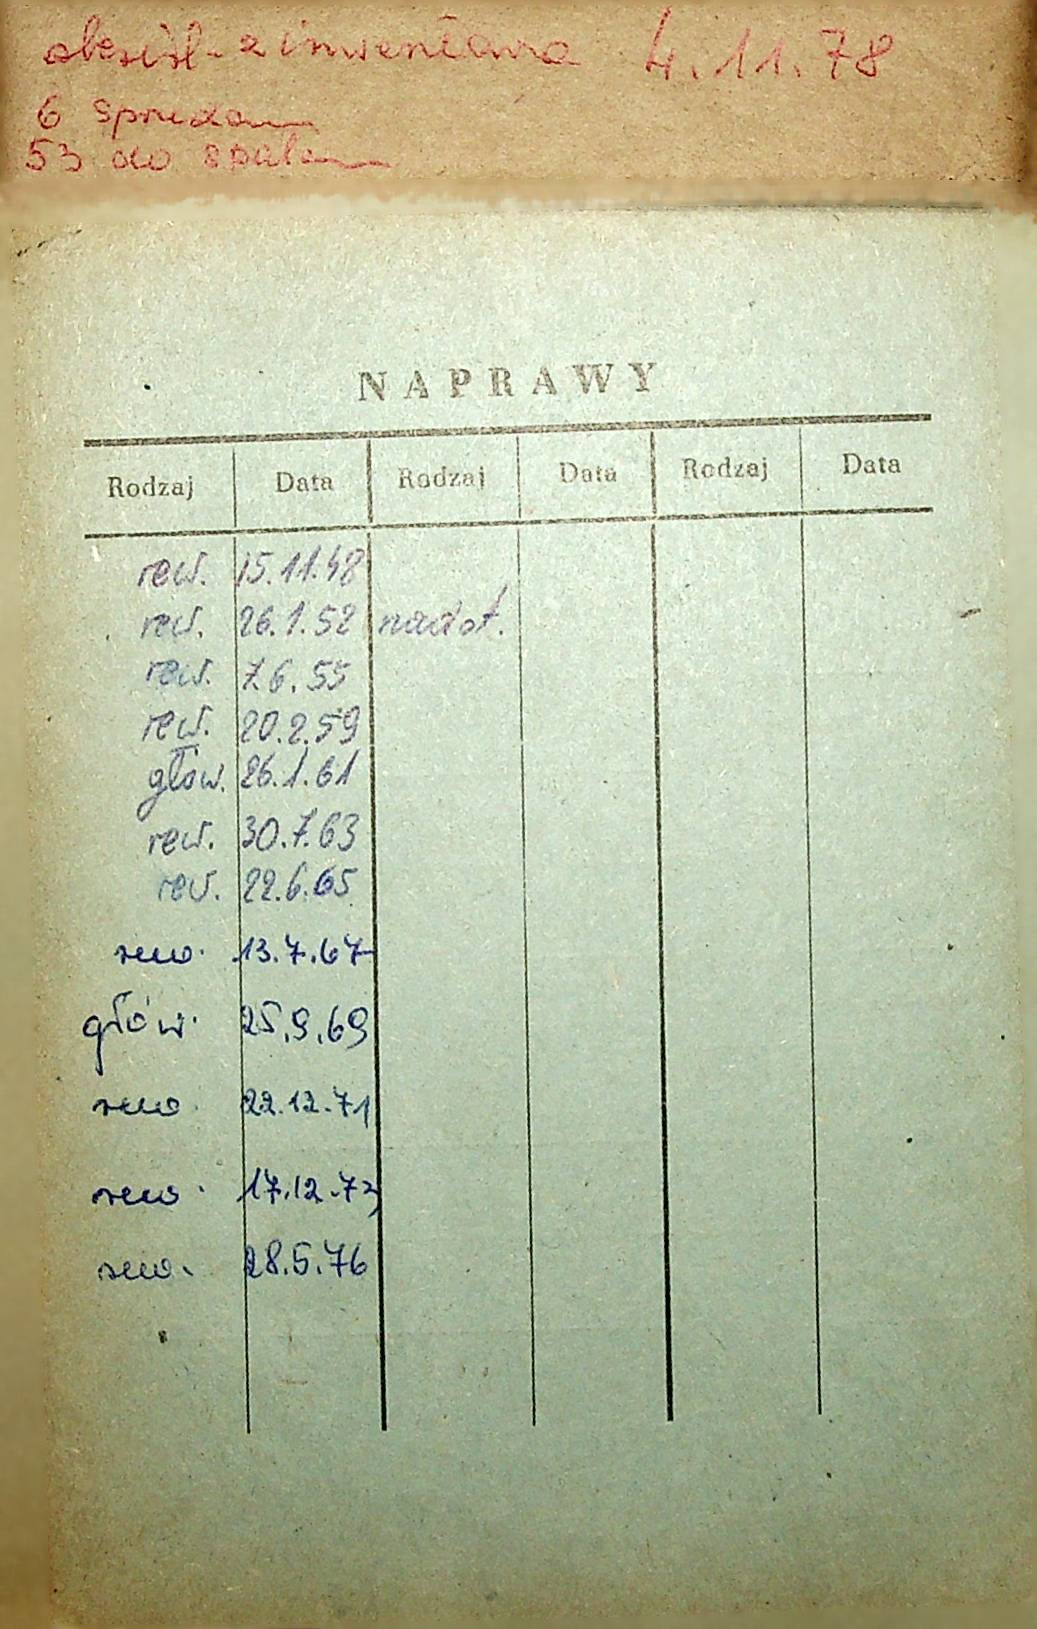 skreśl. z inwentarza 4.11.78
6 sprzedano
53 do spalenia
NAPRAWY
Rodzaj Data Rodzaj Data Rodzaj Data
rew. 15.11.48
rew. 26.1.52 nadot.
rew. 7.6.55
rew. 20.2.59
głów. 26.1.61
rew. 30.7.63
rew. 22.6.65
rew. 13.7.67
głów. 25.9.69
rew. 22.12.71
rew. 17.12.73
rew. 28.5.76